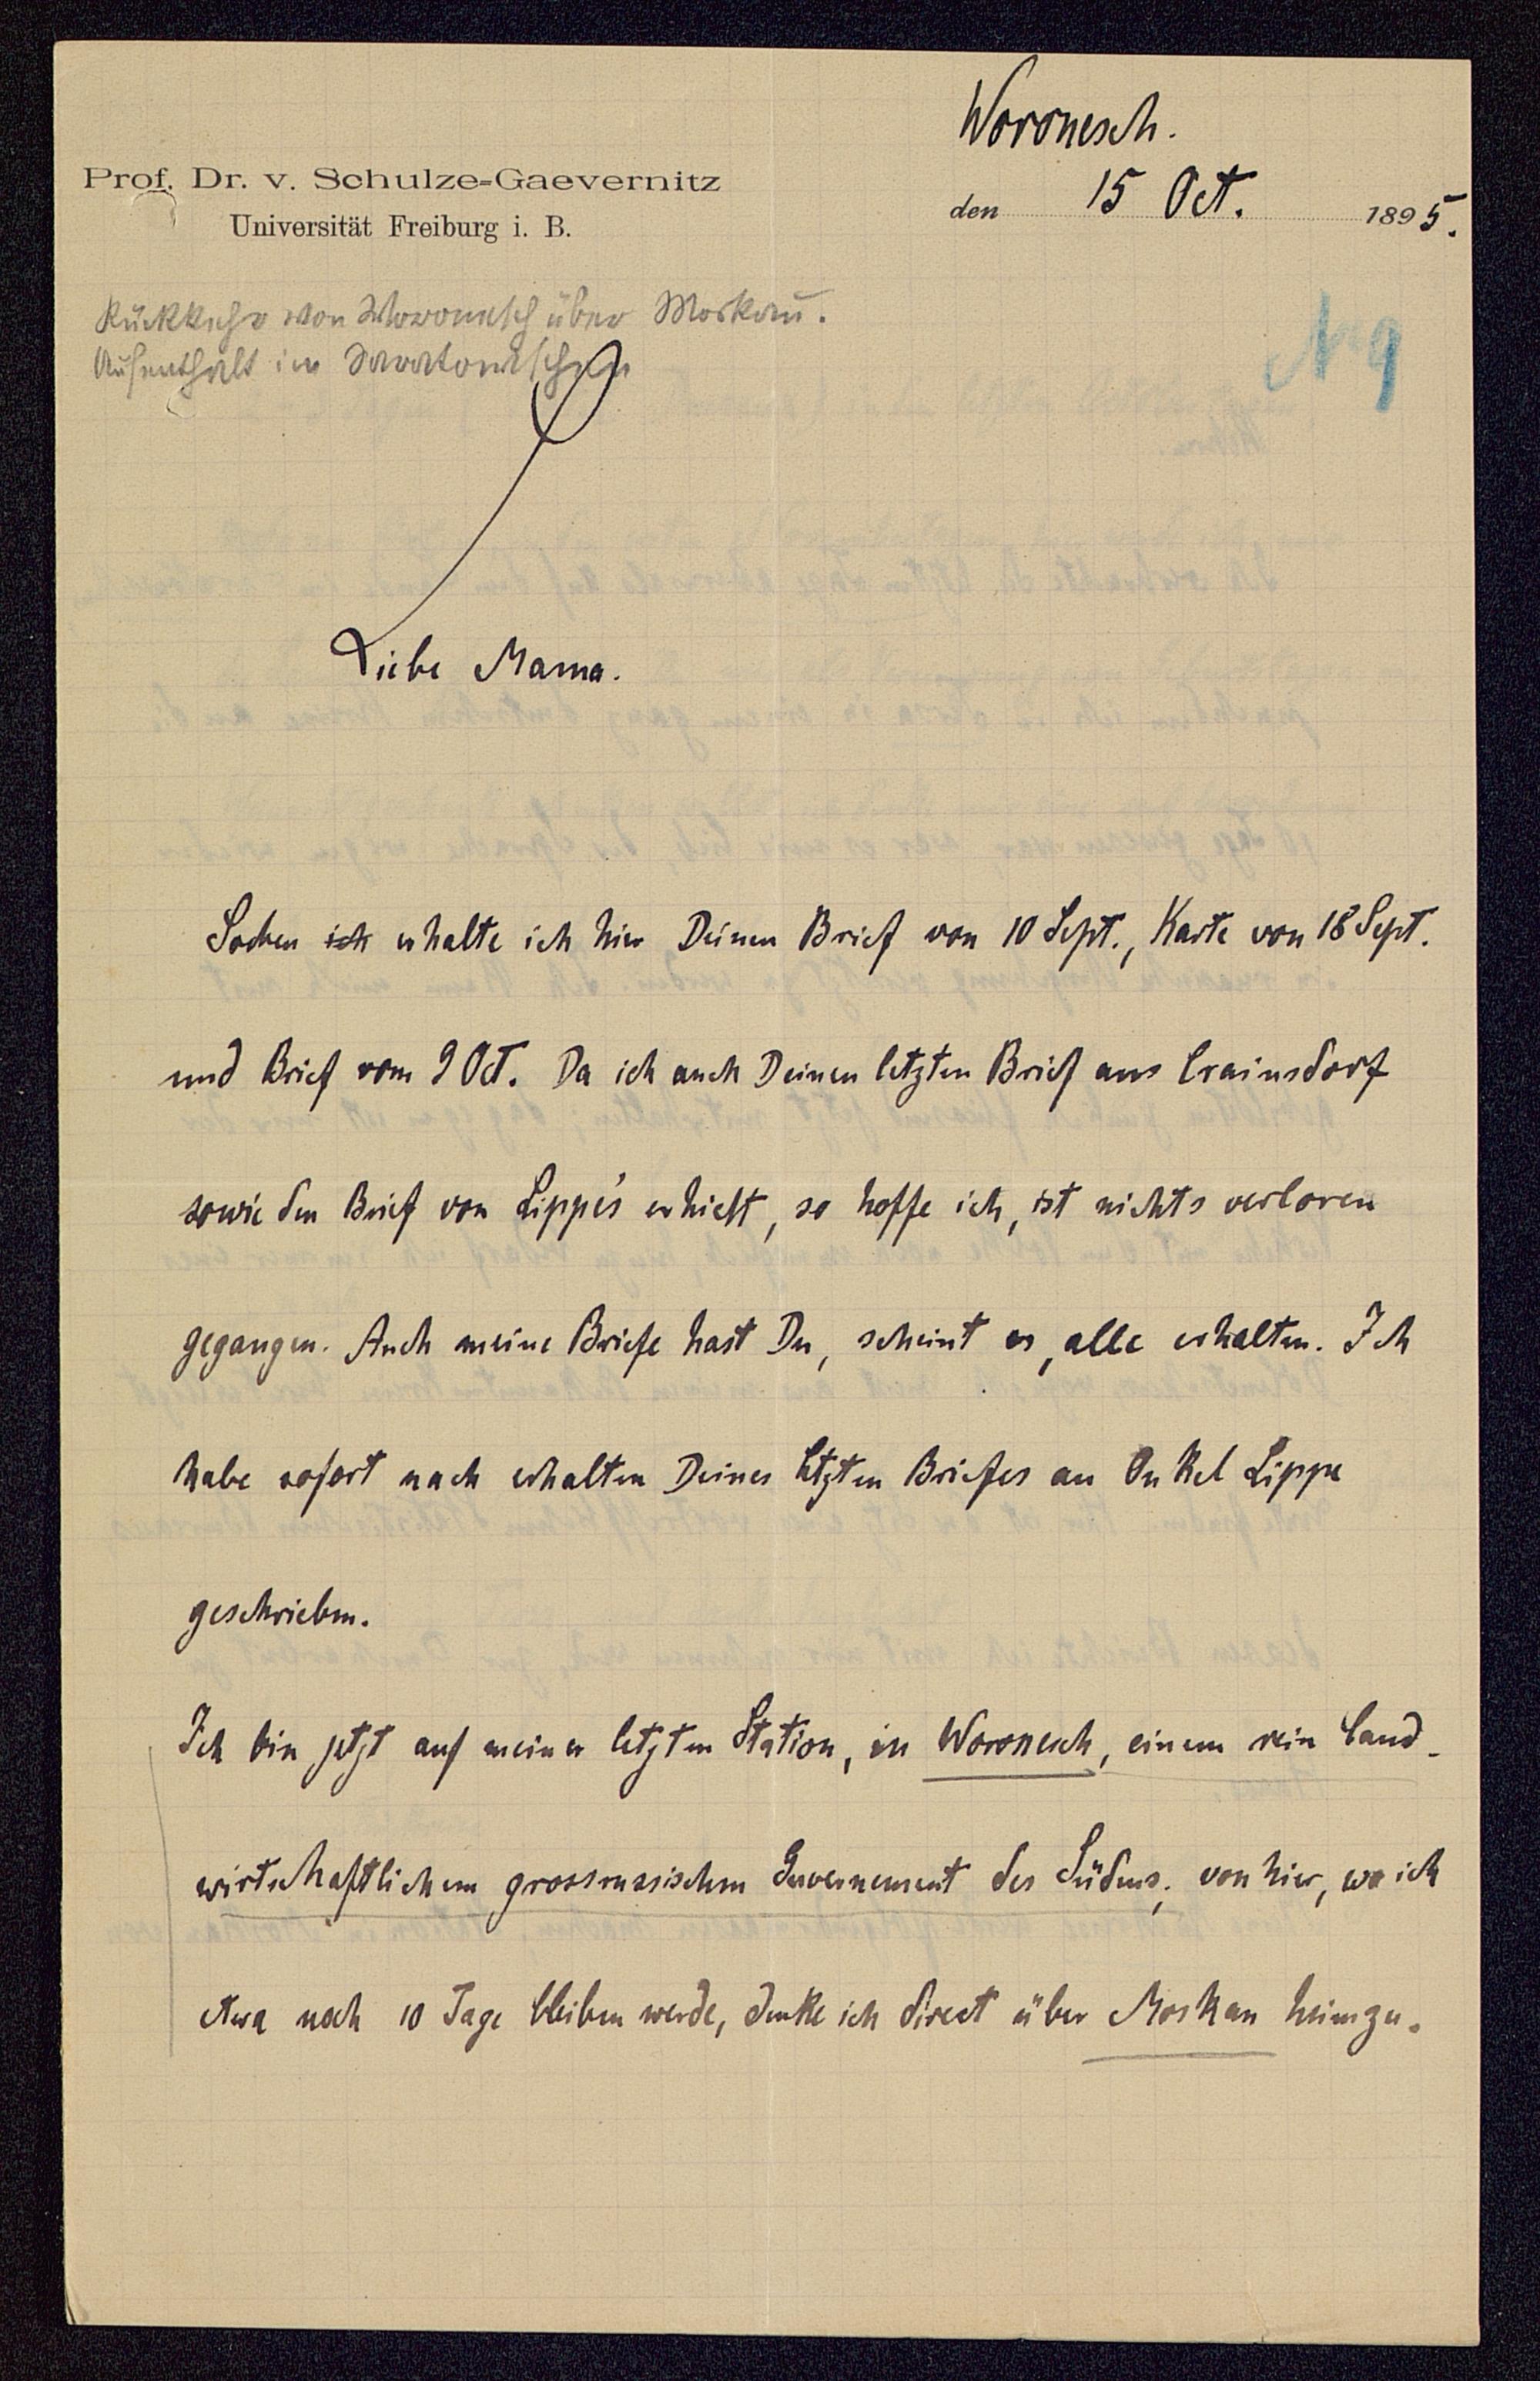 Woronesch.
Prof. Dr. v. Schulze-Gaevernitz
Universität Freiburg i. B.
den 15 Oct. 1895.
Rückkehr von Woronesch über Moskau.
Aufenthalt im Saratowschen
N 9
Liebe Mama.
Soeben ich erhalte ich hier Deinen Brief von 10 Sept., Karte von 18 Sept.
und Brief vom 9 Oct. Da ich auch Deinen letzten Brief aus Crainsdorf
sowie den Brief von Lippe's erhielt, so hoffe ich, ist nichts verloren
gegangen. Auch meine Briefe hast Du, scheint es, alle erhalten. Ich
habe sofort nach erhalten Deines letzten Briefes an Onkel Lippe
geschrieben.
Ich bin jetzt auf meiner letzten Station, in Woronesch, einem rein land-
wirtschaftlichem grossrussischem Guvernement des Südens; von hier, wo ich
etwa noch 10 Tage bleiben werde, denke ich direct über Moskau heimzu-